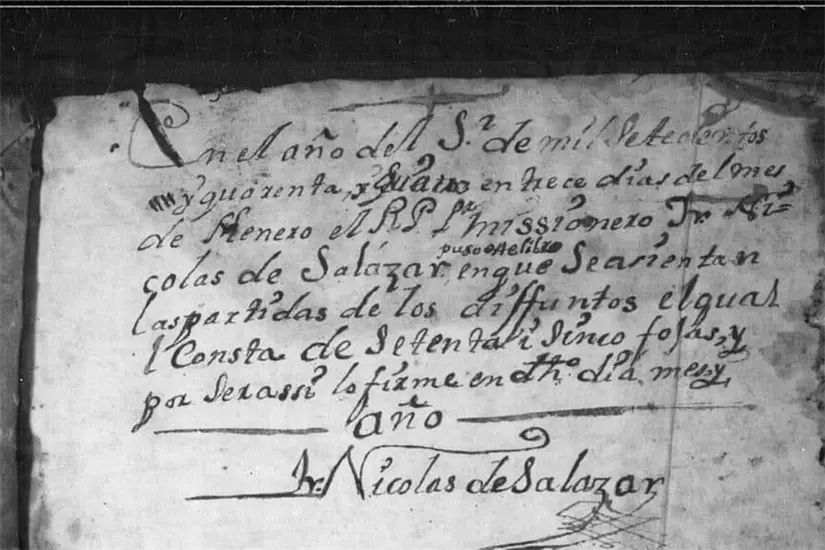 En el año del S.r de mil Setecientos
y quarenta, y quatro en trece dias del mes
de Henero el R P Pr missionero Fr. Ni=
colas de Salázar puso este libro en que Se asientan
las partidas de los diffuntos el qual
Consta de Setenta i Sinco fojas, y
por Ser assi lo firme en dho. dia, mes, y
año
Fr. Nicolas de Salazar